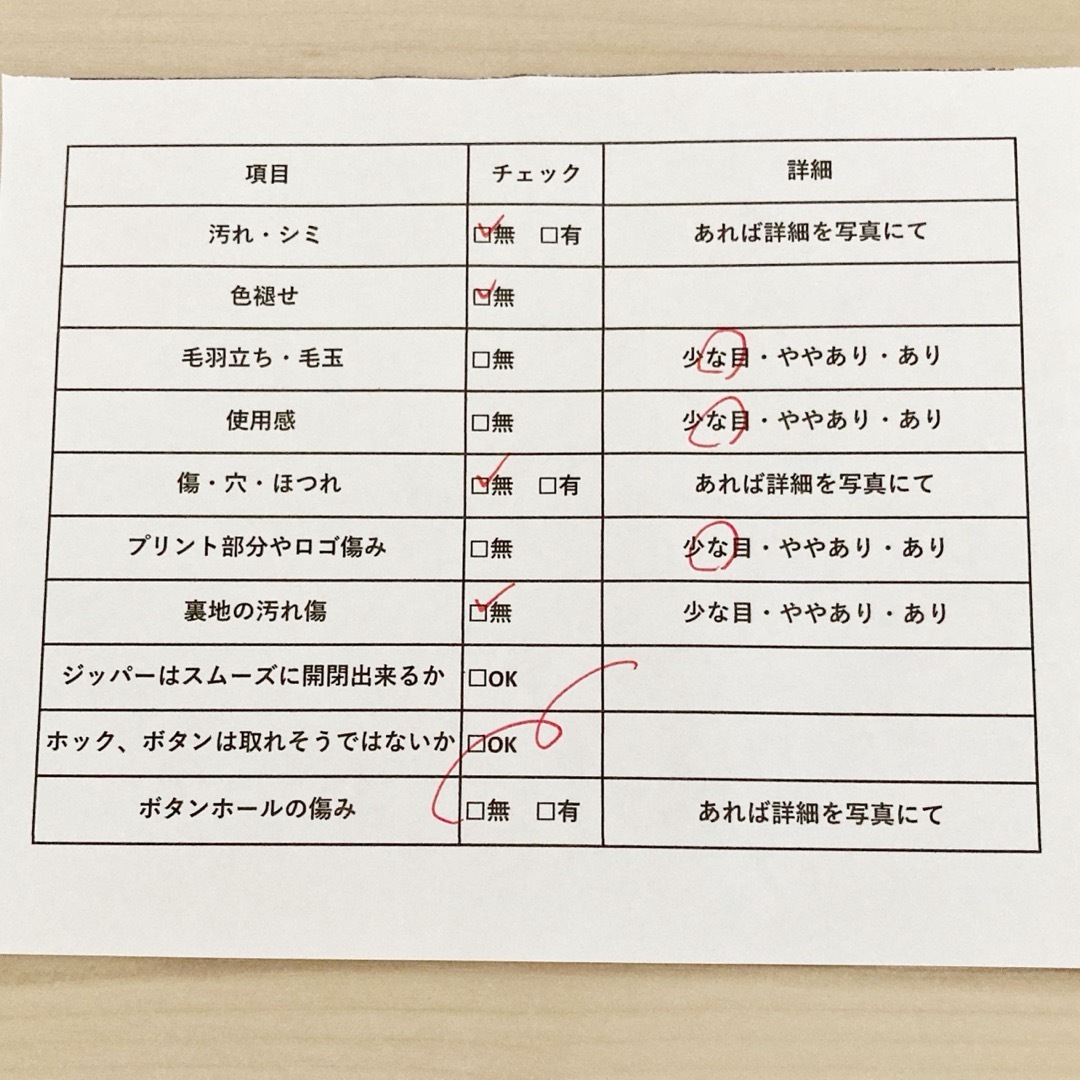 項目 チェック 詳細
汚れ・シミ ☑無 □有 あれば詳細を写真にて
色褪せ ☑無
毛羽立ち・毛玉 □無 少な目・ややあり・あり
使用感 □無 少な目・ややあり・あり
傷・穴・ほつれ ☑無 □有 あれば詳細を写真にて
プリント部分やロゴ傷み □無 少な目・ややあり・あり
裏地の汚れ傷 ☑無 少な目・ややあり・あり
ジッパーはスムーズに開閉出来るか □OK
ホック、ボタンは取れそうではないか □OK
ボタンホールの傷み □無 □有 あれば詳細を写真にて